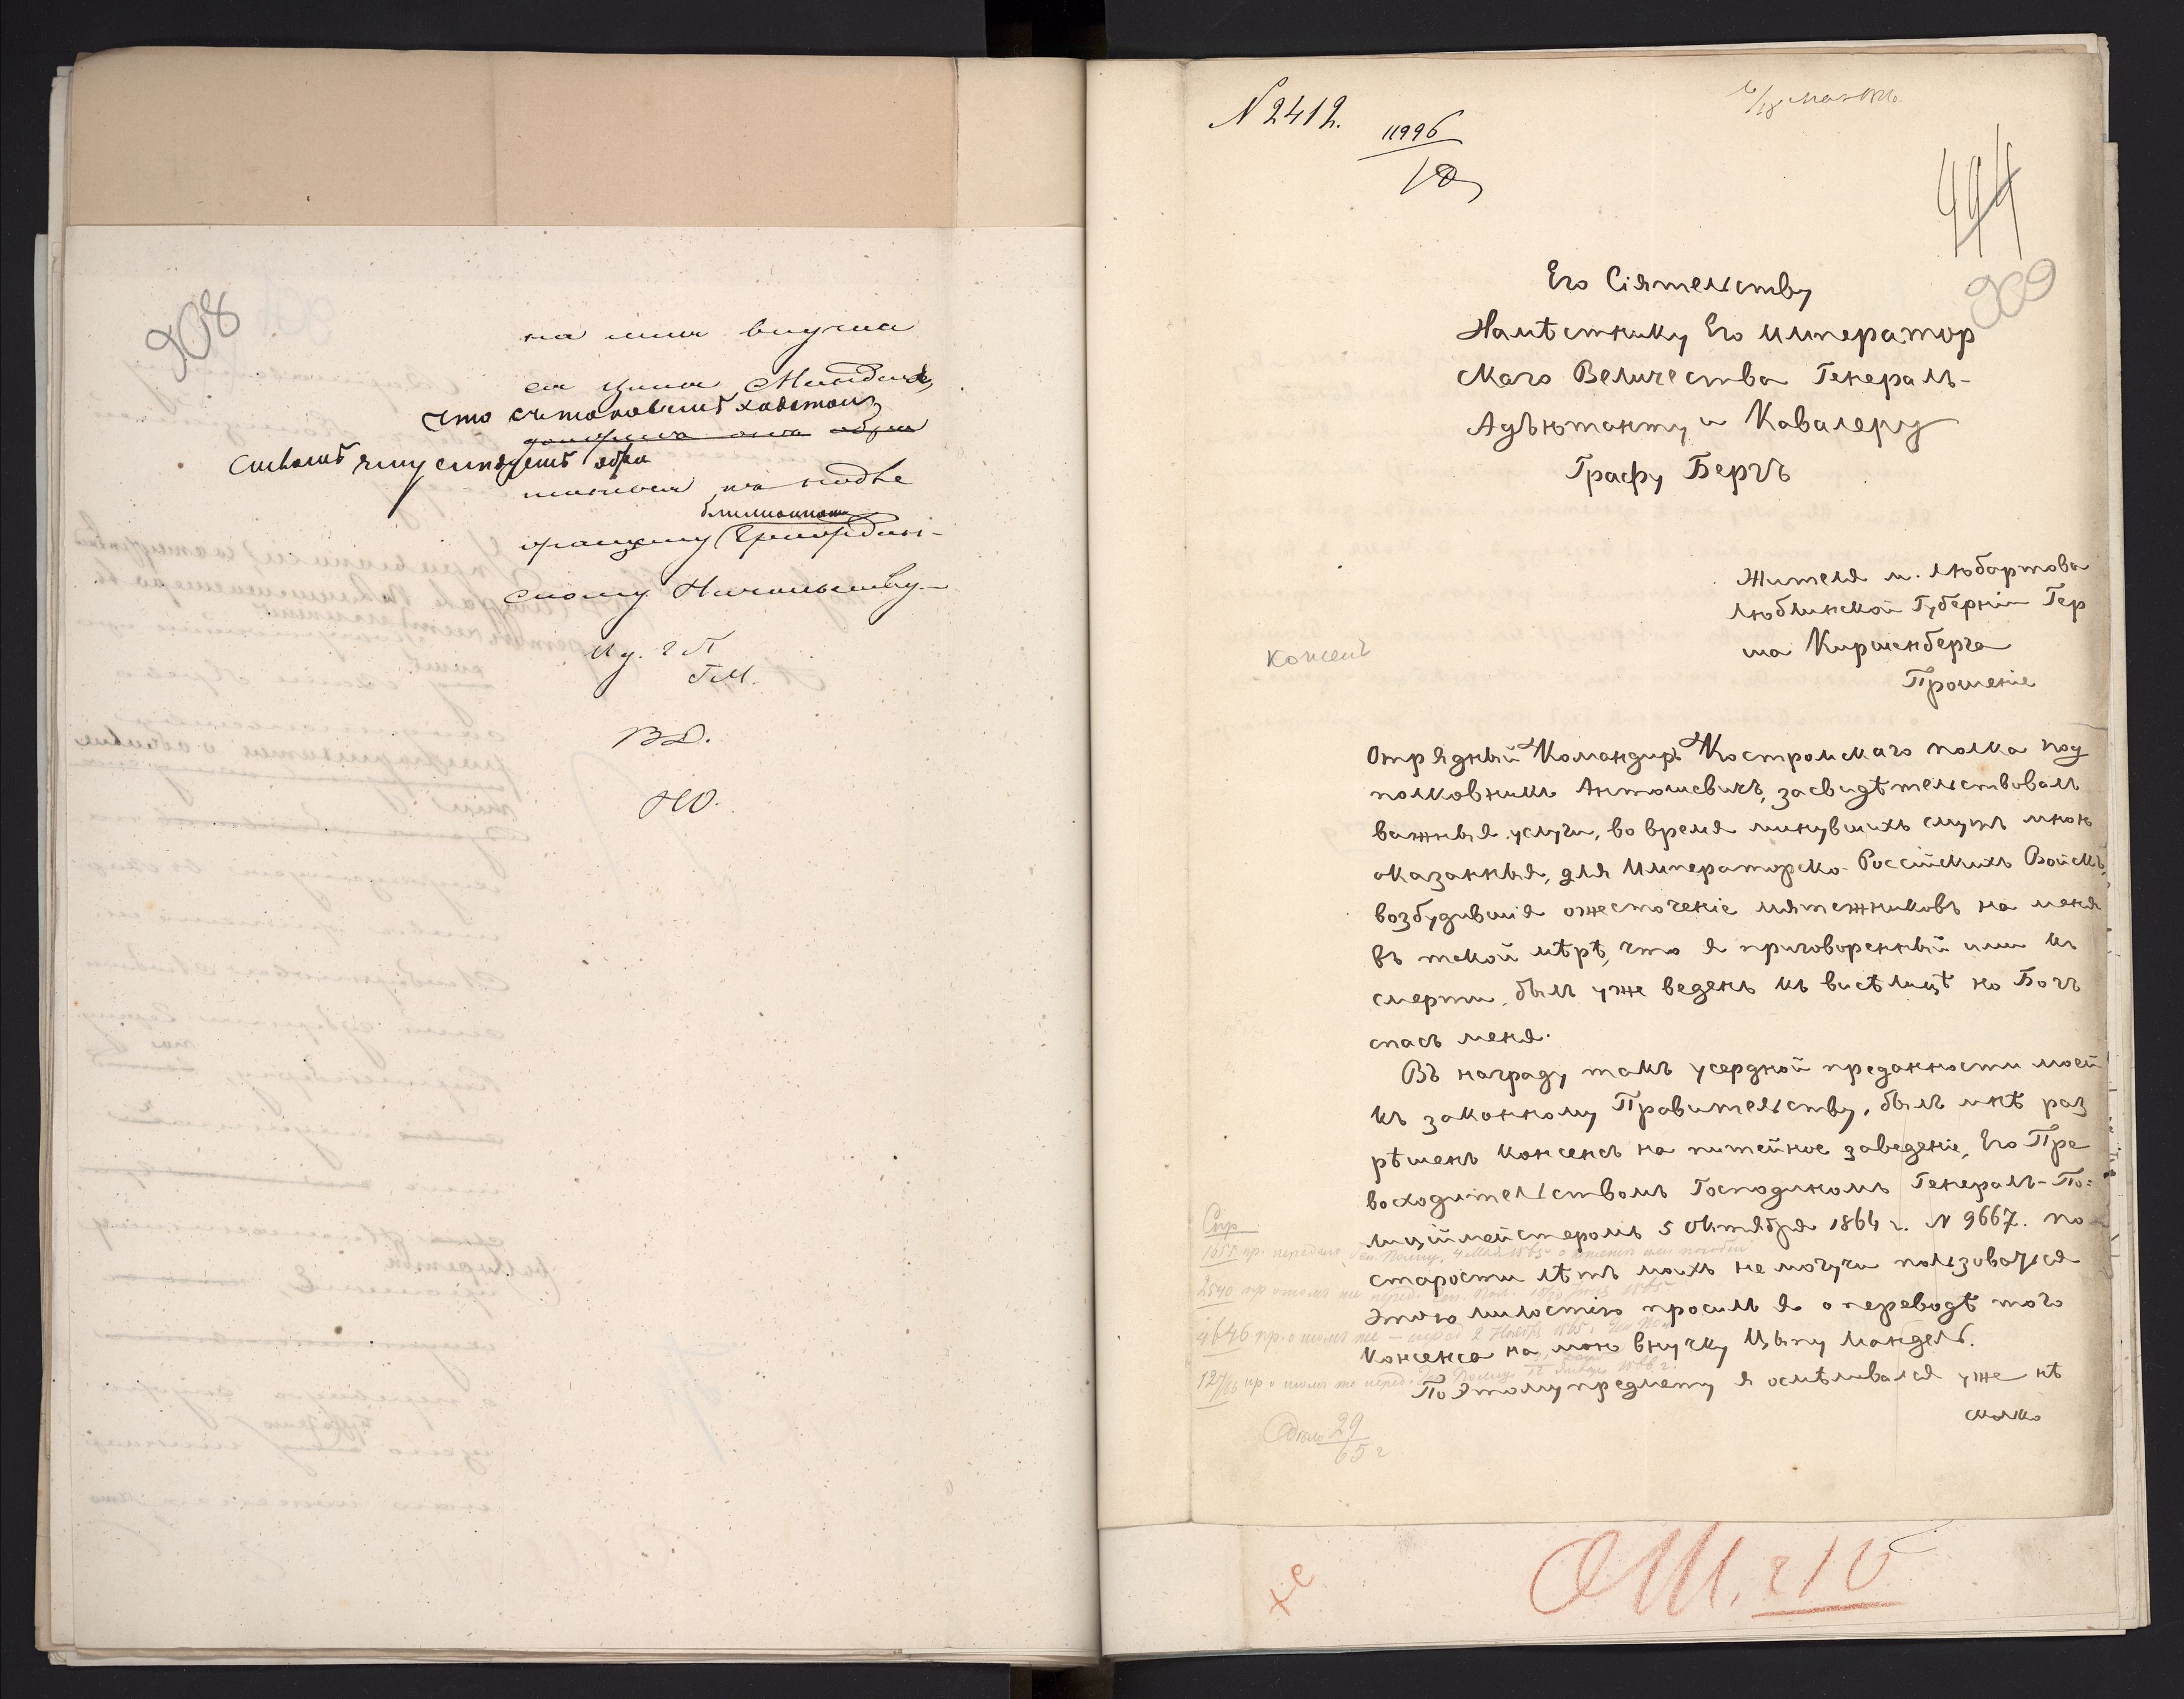 908
на имя внучки
ея Цыпы Мандель,
что съ таковымъ ходатай
ствомъ ему слѣдуетъ обра
титься къ подве
домственному
Начальству
И д. г П
ГМ.
ВД.
НО.
N 2412.
11996
18
444
909
Его Сіятелству
Намѣстнику Его Император
скаго Величества Генералъ-
Адъютанту и Кавалеру
Графу Бергъ
Жителя м. Любартова
Люблинской Губерніи Гер
ша Киршенберга
Прошеніе
Консенсъ
Отрядный Командиръ Костромскаго полка под
полковникъ Антошевичъ, засвидѣтелствовалъ
важныя услуги, во время минувшихъ смутъ мною
оказанныя, для Императорско-Россійскихъ Войскъ,
возбудившія ожесточеніе мятежниковъ на меня
въ такой мѣрѣ, что я приговоренный ими къ
смерти, былъ уже веденъ къ висѣлицѣ но Богъ
спасъ меня.
Въ награду такъ усердной преданности моей
къ законному Правителству, былъ мнѣ раз
рѣшенъ консенсъ на питейное заведеніе, Его Пре
восходителствомъ Господиномъ Генералъ-По=
лиціймейстеромъ 5 Октября 1864 г. N 9667. по
старости лѣтъ моихъ не могучи ползоватся
этою милостію просилъ я о переводѣ того
консенса на мою внучку Цыпу Мандель.
По этому предмету я осмѣливался уже нѣ
сколко
Спр
1655 пр. передано Ген. Полиц. 4 Мая 1865 о консенсѣ или пособіи
2540 пр о томъ же перед. Ген. Пол. 1865
4646 пр. о томъ же — перед 2 Ноябр 1865 г. Ген Пол
127/66 пр о томъ же перед. Ген Полиц. 12 Января 1866 г.
Дѣло 29
65 г
ОШ. г 10